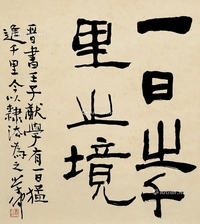 一日之千
里之境
晋書王子献學有一日猛
進千里今以隸法為之